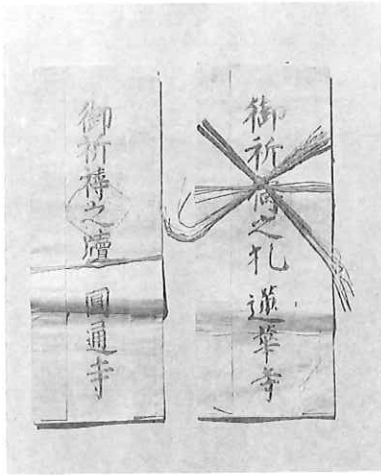 御祈禱之札 蓮華寺
御祈禱之牘 圓通寺